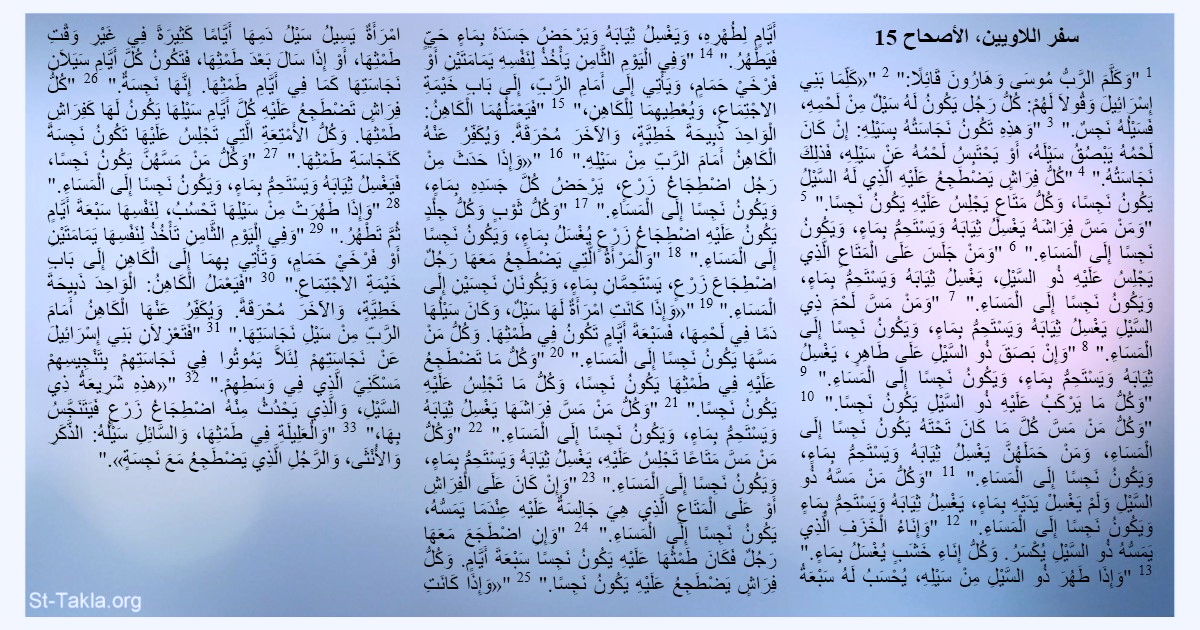 سفر اللاويين، الأصحاح 15
1 "وَكَلَّمَ الرَّبُّ مُوسَى وَهَارُونَ قَائِلًا:" 2 "«كَلِّمَا بَنِي
إِسْرَائِيلَ وَقُولاَ لَهُمْ: كُلُّ رَجُل يَكُونُ لَهُ سَيْلٌ مِنْ لَحْمِهِ،
فَسَيْلُهُ نَجِسٌ." 3 "وَهذِهِ تَكُونُ نَجَاسَتُهُ بِسَيْلِهِ: إِنْ كَانَ
لَحْمُهُ يَبْصُقُ سَيْلَهُ، أَوْ يَحْتَبِسُ لَحْمُهُ عَنْ سَيْلِهِ، فَذلِكَ
نَجَاسَتُهُ." 4 "كُلُّ فِرَاشٍ يَضْطَجعُ عَلَيْهِ الَّذِي لَهُ السَّيْلُ
يَكُونُ نَجِسًا، وَكُلُّ مَتَاعٍ يَجْلِسُ عَلَيْهِ يَكُونُ نَجِسًا." 5
"وَمَنْ مَسَّ فِرَاشَهُ يَغْسِلُ ثِيَابَهُ وَيَسْتَحِمُّ بِمَاءٍ، وَيَكُونُ
نَجِسًا إِلَى الْمَسَاءِ." 6 "وَمَنْ جَلَسَ عَلَى الْمَتَاعِ الَّذِي
يَجْلِسُ عَلَيْهِ ذُو السَّيْلِ، يَغْسِلُ ثِيَابَهُ وَيَسْتَحِمُّ بِمَاءٍ،
وَيَكُونُ نَجِسًا إِلَى الْمَسَاءِ." 7 "وَمَنْ مَسَّ لَحْمَ ذِي
السَّيْلِ يَغْسِلُ ثِيَابَهُ وَيَسْتَحِمُّ بِمَاءٍ، وَيَكُونُ نَجِسًا إِلَى
الْمَسَاءِ." 8 "وَإِنْ بَصَقَ ذُو السَّيْلِ عَلَى طَاهِرٍ، يَغْسِلُ
ثِيَابَهُ وَيَسْتَحِمُّ بِمَاءٍ، وَيَكُونُ نَجِسًا إِلَى الْمَسَاءِ." 9
"وَكُلُّ مَا يَرْكَبُ عَلَيْهِ ذُو السَّيْلِ يَكُونُ نَجِسًا." 10
"وَكُلُّ مَنْ مَسَّ كُلَّ مَا كَانَ تَحْتَهُ يَكُونُ نَجِسًا إِلَى
الْمَسَاءِ، وَمَنْ حَمَلَهُنَّ يَغْسِلُ ثِيَابَهُ وَيَسْتَحِمُّ بِمَاءٍ،
وَيَكُونُ نَجِسًا إِلَى الْمَسَاءِ." 11 "وَكُلُّ مَنْ مَسَّهُ ذُو
السَّيْلِ وَلَمْ يَغْسِلْ يَدَيْهِ بِمَاءٍ، يَغْسِلُ ثِيَابَهُ وَيَسْتَحِمُّ بِمَاءٍ
وَيَكُونُ نَجِسًا إِلَى الْمَسَاءِ." 12 "وَإِنَاءُ الْخَزَفِ الَّذِي
يَمَسُّهُ ذُو السَّيْلِ يُكْسَرُ. وَكُلُّ إِنَاءِ خَشَبٍ يُغْسَلُ بِمَاءٍ."
13 "وَإِذَا طَهُرَ ذُو السَّيْلِ مِنْ سَيْلِهِ، يُحْسَبُ لَهُ سَبْعَةُ
أَيَّامٍ لِطُهْرِهِ، وَيَغْسِلُ ثِيَابَهُ وَيَرْحَضُ جَسَدَهُ بِمَاءٍ حَيٍّ
فَيَطْهُرُ." 14 "وَفِي الْيَوْمِ الثَّامِنِ يَأْخُذُ لِنَفْسِهِ يَمَامَتَيْنِ أَوْ
فَرْخَيْ حَمَامٍ، وَيَأْتِي إِلَى أَمَامِ الرَّبِّ، إِلَى بَابِ خَيْمَةِ
الاجْتِمَاعِ، وَيُعْطِيهِمَا لِلْكَاهِنِ،" 15 "فَيَعْمَلُهُمَا الْكَاهِنُ:
الْوَاحِدَ ذَبِيحَةَ خَطِيَّةٍ، وَالآخَرَ مُحْرَقَةً. وَيُكَفِّرُ عَنْهُ
الْكَاهِنُ أَمَامَ الرَّبِّ مِنْ سَيْلِهِ." 16 "«وَإِذَا حَدَثَ مِنْ
رَجُل اضْطِجَاعُ زَرْعٍ، يَرْحَضُ كُلَّ جَسَدِهِ بِمَاءٍ،
وَيَكُونُ نَجِسًا إِلَى الْمَسَاءِ." 17 "وَكُلُّ ثَوْبٍ وَكُلُّ جِلْدٍ
يَكُونُ عَلَيْهِ اضْطِجَاعُ زَرْعٍ يُغْسَلُ بِمَاءٍ، وَيَكُونُ نَجِسًا
إِلَى الْمَسَاءِ." 18 "وَالْمَرْأَةُ الَّتِي يَضْطَجِعُ مَعَهَا رَجُلٌ
اضْطِجَاعَ زَرْعٍ، يَسْتَحِمَّانِ بِمَاءٍ، وَيَكُونَانِ نَجِسَيْنِ إِلَى
الْمَسَاءِ." 19 "«وَإِذَا كَانَتِ امْرَأَةٌ لَهَا سَيْلٌ، وَكَانَ سَيْلُهَا
دَمًا فِي لَحْمِهَا، فَسَبْعَةَ أَيَّامٍ تَكُونُ فِي طَمْثِهَا. وَكُلُّ مَنْ
مَسَّهَا يَكُونُ نَجِسًا إِلَى الْمَسَاءِ." 20 "وَكُلُّ مَا تَضْطَجعُ
عَلَيْهِ فِي طَمْثِهَا يَكُونُ نَجِسًا، وَكُلُّ مَا تَجْلِسُ عَلَيْهِ
يَكُونُ نَجِسًا." 21 "وَكُلُّ مَنْ مَسَّ فِرَاشَهَا يَغْسِلُ ثِيَابَهُ
وَيَسْتَحِمُّ بِمَاءٍ، وَيَكُونُ نَجِسًا إِلَى الْمَسَاءِ." 22 "وَكُلُّ
مَنْ مَسَّ مَتَاعًا تَجْلِسُ عَلَيْهِ، يَغْسِلُ ثِيَابَهُ وَيَسْتَحِمُّ بِمَاءٍ،
وَيَكُونُ نَجِسًا إِلَى الْمَسَاءِ." 23 "وَإِنْ كَانَ عَلَى الْفِرَاشِ
أَوْ عَلَى الْمَتَاعِ الَّذِي هِيَ جَالِسَةٌ عَلَيْهِ عِنْدَمَا يَمَسُّهُ،
يَكُونُ نَجِسًا إِلَى الْمَسَاءِ." 24 "وَإِنِ اضْطَجَعَ مَعَهَا
رَجُلٌ فَكَانَ طَمْثُهَا عَلَيْهِ يَكُونُ نَجِسًا سَبْعَةَ أَيَّامٍ. وَكُلُّ
فِرَاشٍ يَضْطَجعُ عَلَيْهِ يَكُونُ نَجِسًا." 25 "«وَإِذَا كَانَتِ
امْرَأَةٌ يَسِيلُ سَيْلُ دَمِهَا أَيَّامًا كَثِيرَةً فِي غَيْرِ وَقْتِ
طَمْثِهَا، أَوْ إِذَا سَالَ بَعْدَ طَمْثِهَا، فَتَكُونُ كُلَّ أَيَّامِ سَيَلاَنِ
نَجَاسَتِهَا كَمَا فِي أَيَّامِ طَمْثِهَا. إِنَّهَا نَجِسَةٌ." 26 "كُلُّ
فِرَاشٍ تَضْطَجعُ عَلَيْهِ كُلَّ أَيَّامِ سَيْلِهَا يَكُونُ لَهَا كَفِرَاشِ
طَمْثِهَا. وَكُلُّ الأَمْتِعَةِ الَّتِي تَجْلِسُ عَلَيْهَا تَكُونُ نَجِسَةً
كَنَجَاسَةِ طَمْثِهَا." 27 "وَكُلُّ مَنْ مَسَّهُنَّ يَكُونُ نَجِسًا،
فَيَغْسِلُ ثِيَابَهُ وَيَسْتَحِمُّ بِمَاءٍ، وَيَكُونُ نَجِسًا إِلَى الْمَسَاءِ."
28 "وَإِذَا طَهُرَتْ مِنْ سَيْلِهَا تَحْسُبُ، لِنَفْسِهَا سَبْعَةَ أَيَّامٍ
ثُمَّ تَطْهُرُ." 29 "وَفِي الْيَوْمِ الثَّامِنِ تَأْخُذُ لِنَفْسِهَا يَمَامَتَيْنِ
أَوْ فَرْخَيْ حَمَامٍ، وَتَأْتِي بِهِمَا إِلَى الْكَاهِنِ إِلَى بَابِ
خَيْمَةِ الاجْتِمَاعِ." 30 "فَيَعْمَلُ الْكَاهِنُ: الْوَاحِدَ ذَبِيحَةَ
خَطِيَّةٍ، وَالآخَرَ مُحْرَقَةً. وَيُكَفِّرُ عَنْهَا الْكَاهِنُ أَمَامَ
الرَّبِّ مِنْ سَيْلِ نَجَاسَتِهَا." 31 "فَتَعْزِلاَنِ بَنِي إِسْرَائِيلَ
عَنْ نَجَاسَتِهِمْ لِئَلاَّ يَمُوتُوا فِي نَجَاسَتِهِمْ بِتَنْجِيسِهِمْ
مَسْكَنِيَ الَّذِي فِي وَسَطِهِمْ." 32 "«هذِهِ شَرِيعَةُ ذِي
السَّيْلِ، وَالَّذِي يَحْدُثُ مِنْهُ اضْطِجَاعُ زَرْعٍ فَيَتَنَجَّسُ
بِهَا،" 33 "وَالْعَلِيلَةِ فِي طَمْثِهَا، وَالسَّائِلِ سَيْلُهُ: الذَّكَرِ
وَالأُنْثَى، وَالرَّجُلِ الَّذِي يَضْطَجِعُ مَعَ نَجِسَةٍ»."
St-Takla.org